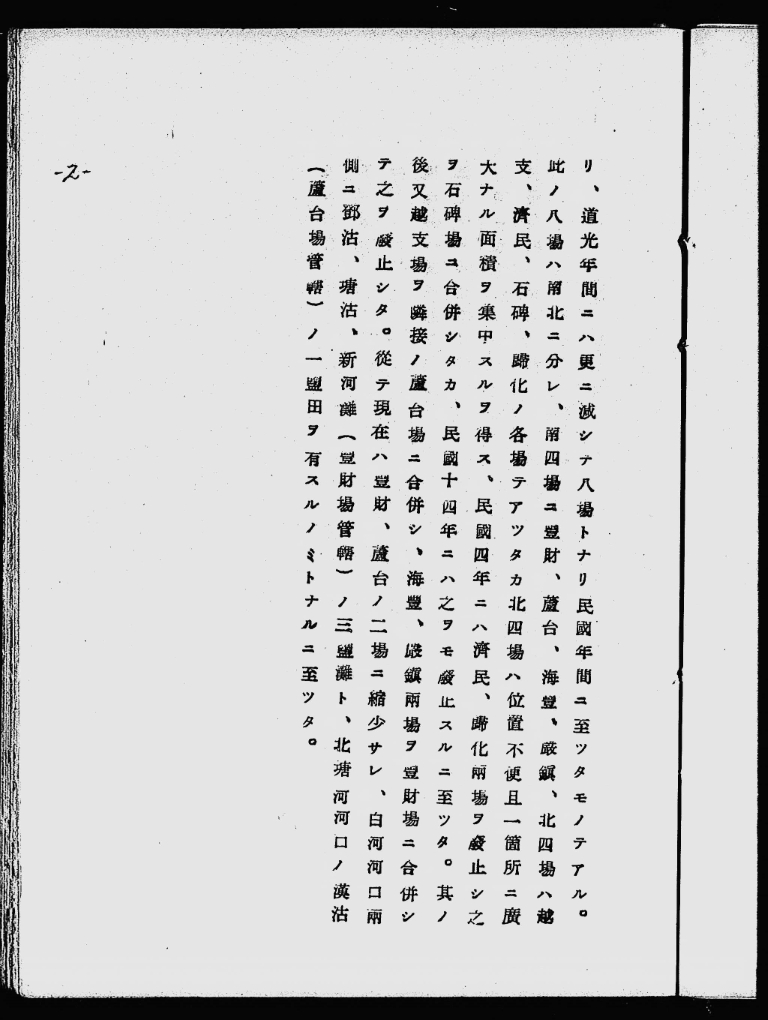 リ、道光年間ニハ更ニ減シテ八場トナリ民國年間ニ至ツタモノテアル。
此ノ八場ハ南北ニ分レ、南四場ニ豐財、蘆台、海豐、嚴鎭、北四場ハ越
支、濟民、石碑、歸化ノ各場テアツタカ北四場ハ位置不便且一箇所ニ廣
大ナル面積ヲ集中スルヲ得ス、民國四年ニハ濟民、歸化兩場ヲ廢止シ之
ヲ石碑場ニ合併シタカ、民國十四年ニハ之ヲモ廢止スルニ至ツタ。其ノ
後又越支場ヲ隣接ノ蘆台場ニ合併シ、海豐、嚴鎭兩場ヲ豐財場ニ合併シ
テ之ヲ廢止シタ。從テ現在ハ豐財、蘆台ノ二場ニ縮少サレ、白河河口兩
側ニ鄧沽、塘沽、新河灘（豐財場管轄）ノ三鹽灘ト、北塘河河口ノ漢沽
（蘆台場管轄）ノ一鹽田ヲ有スルノミトナルニ至ツタ。
-2-